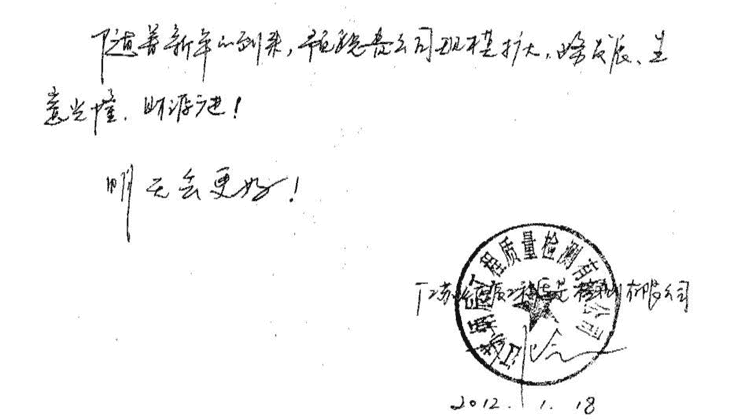 随着新年的到来，希望贵公司规模扩大，发展、生
意兴隆、财源进！
明天会更好！
程质量检测有限公司
江苏工程质量检测有限公司
2012.1.18